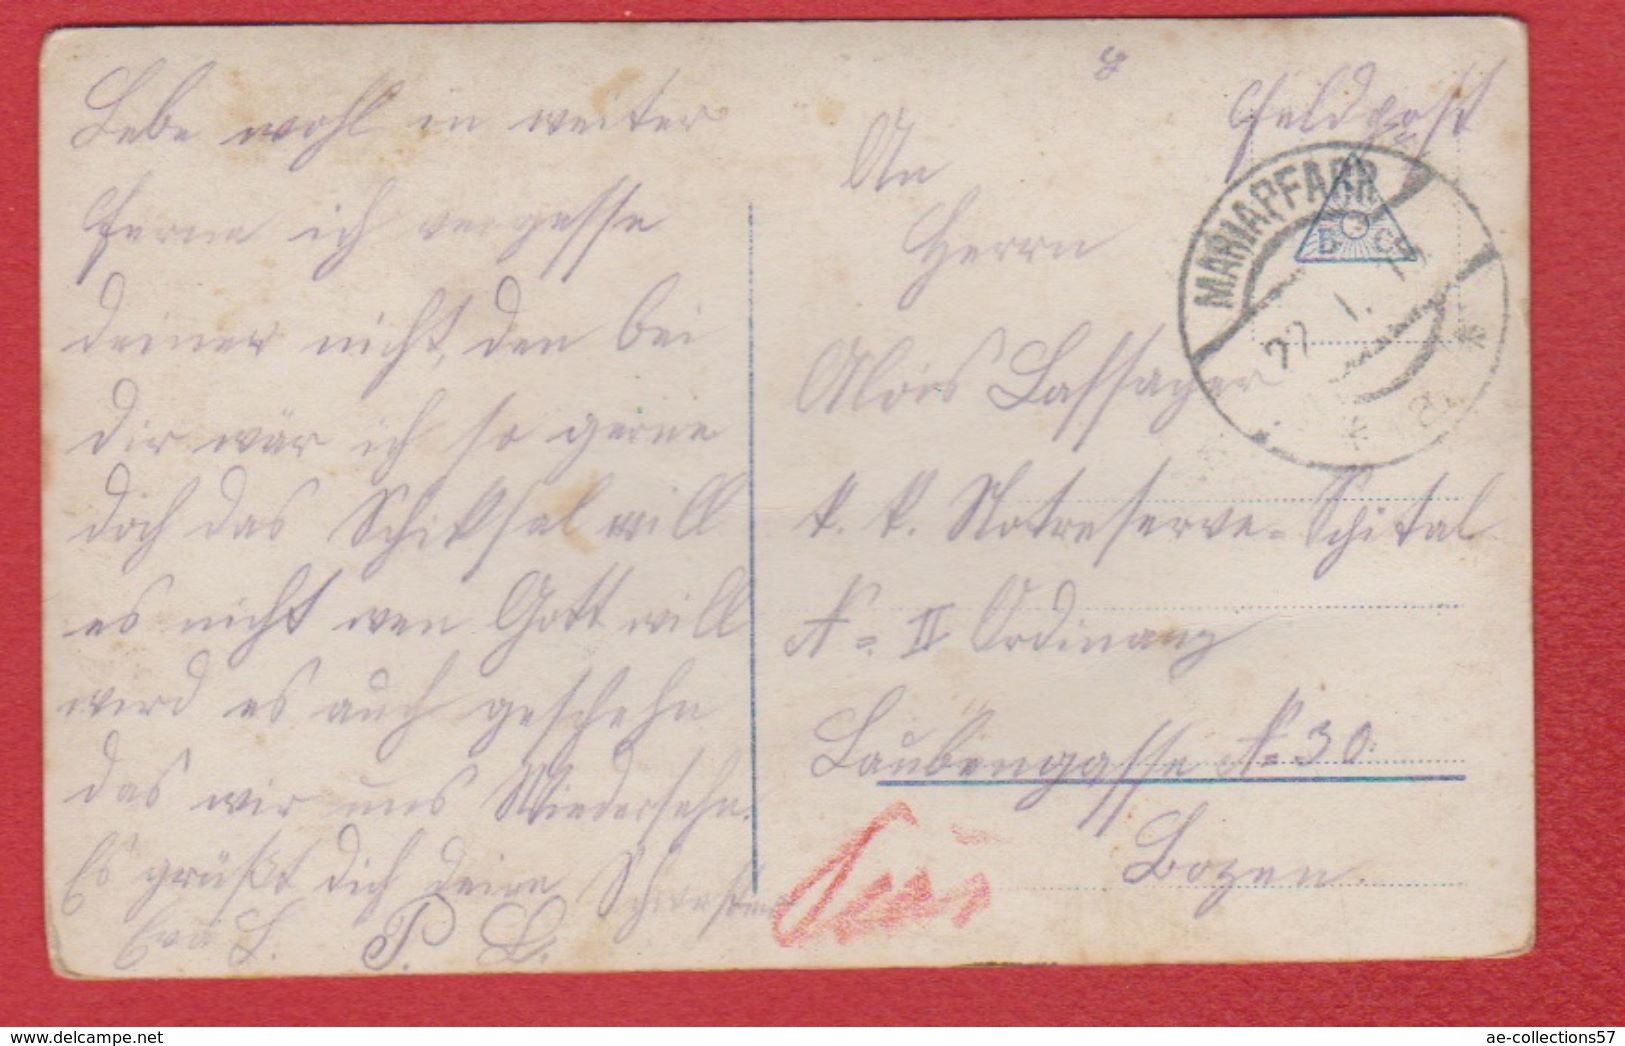 Lebe wohl in weiter
Ferne ich vergesse
deiner nicht, den bei
dir wär ich so gerne
doch das Schiksal will
es nicht wen Gott will
wird es auch geschehn
das wir uns Wiedersehn.
Es grüßt dich deine Schwester
Eva L. P. L.
Feldpost
An
Herrn
Alois Lassager
k. k. Notreserve-Spital
N= II Ordinanz
Laubengasse N= 30.
Bozen.
MARIAPFARR
22. 1. 17
ae-collections57